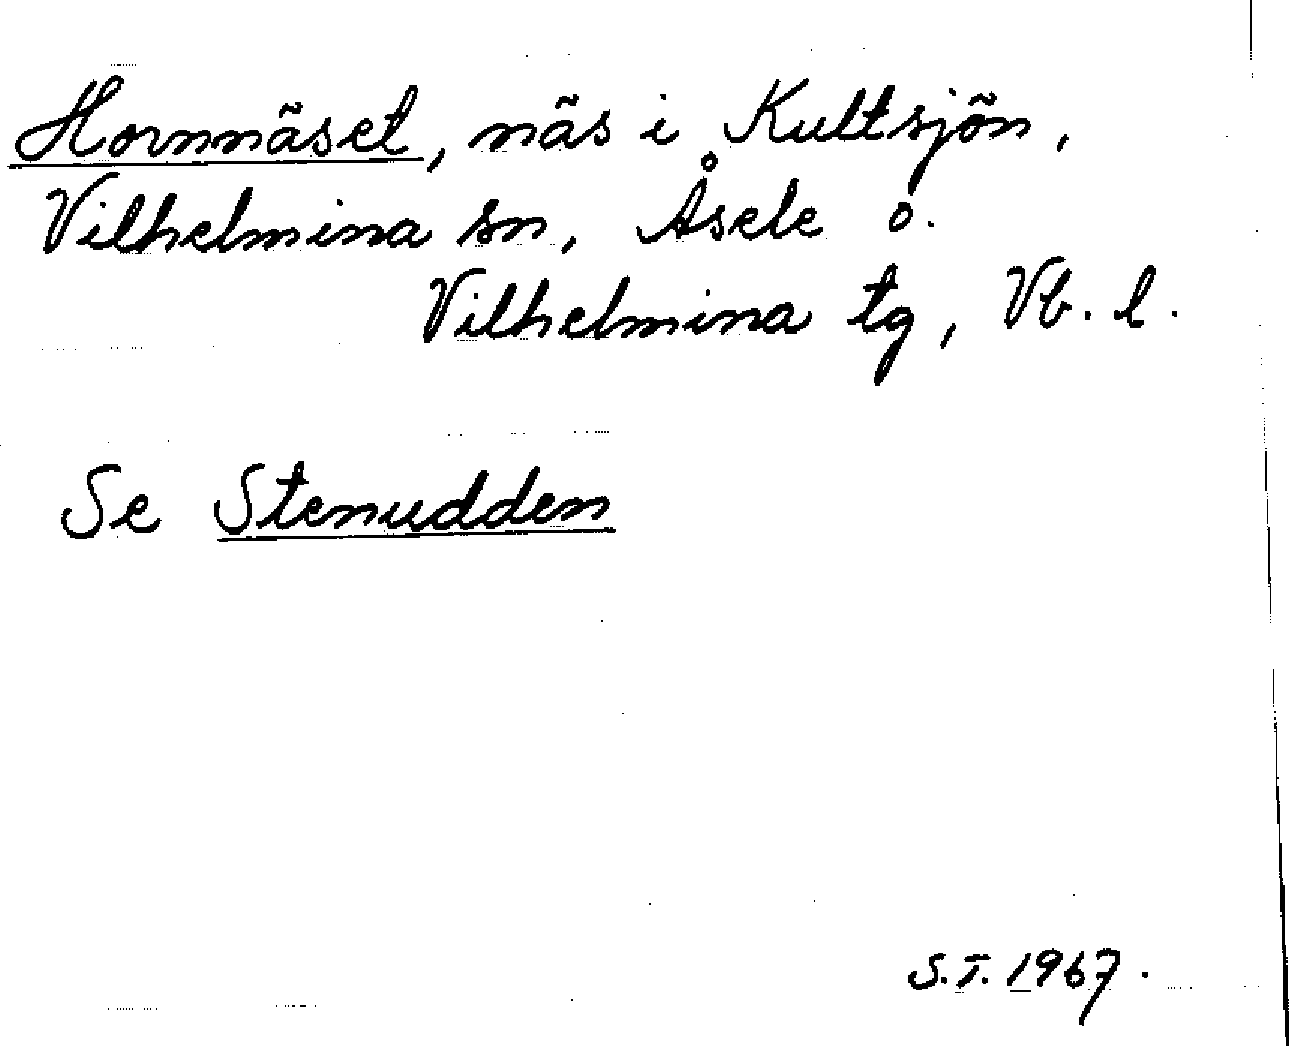 Hornnäset, näs i Kultsjön,
Vilhelmina sn, Åsele o.
Vilhelmina tg, Vb. l.
Se Stenudden
S.T. 1967.